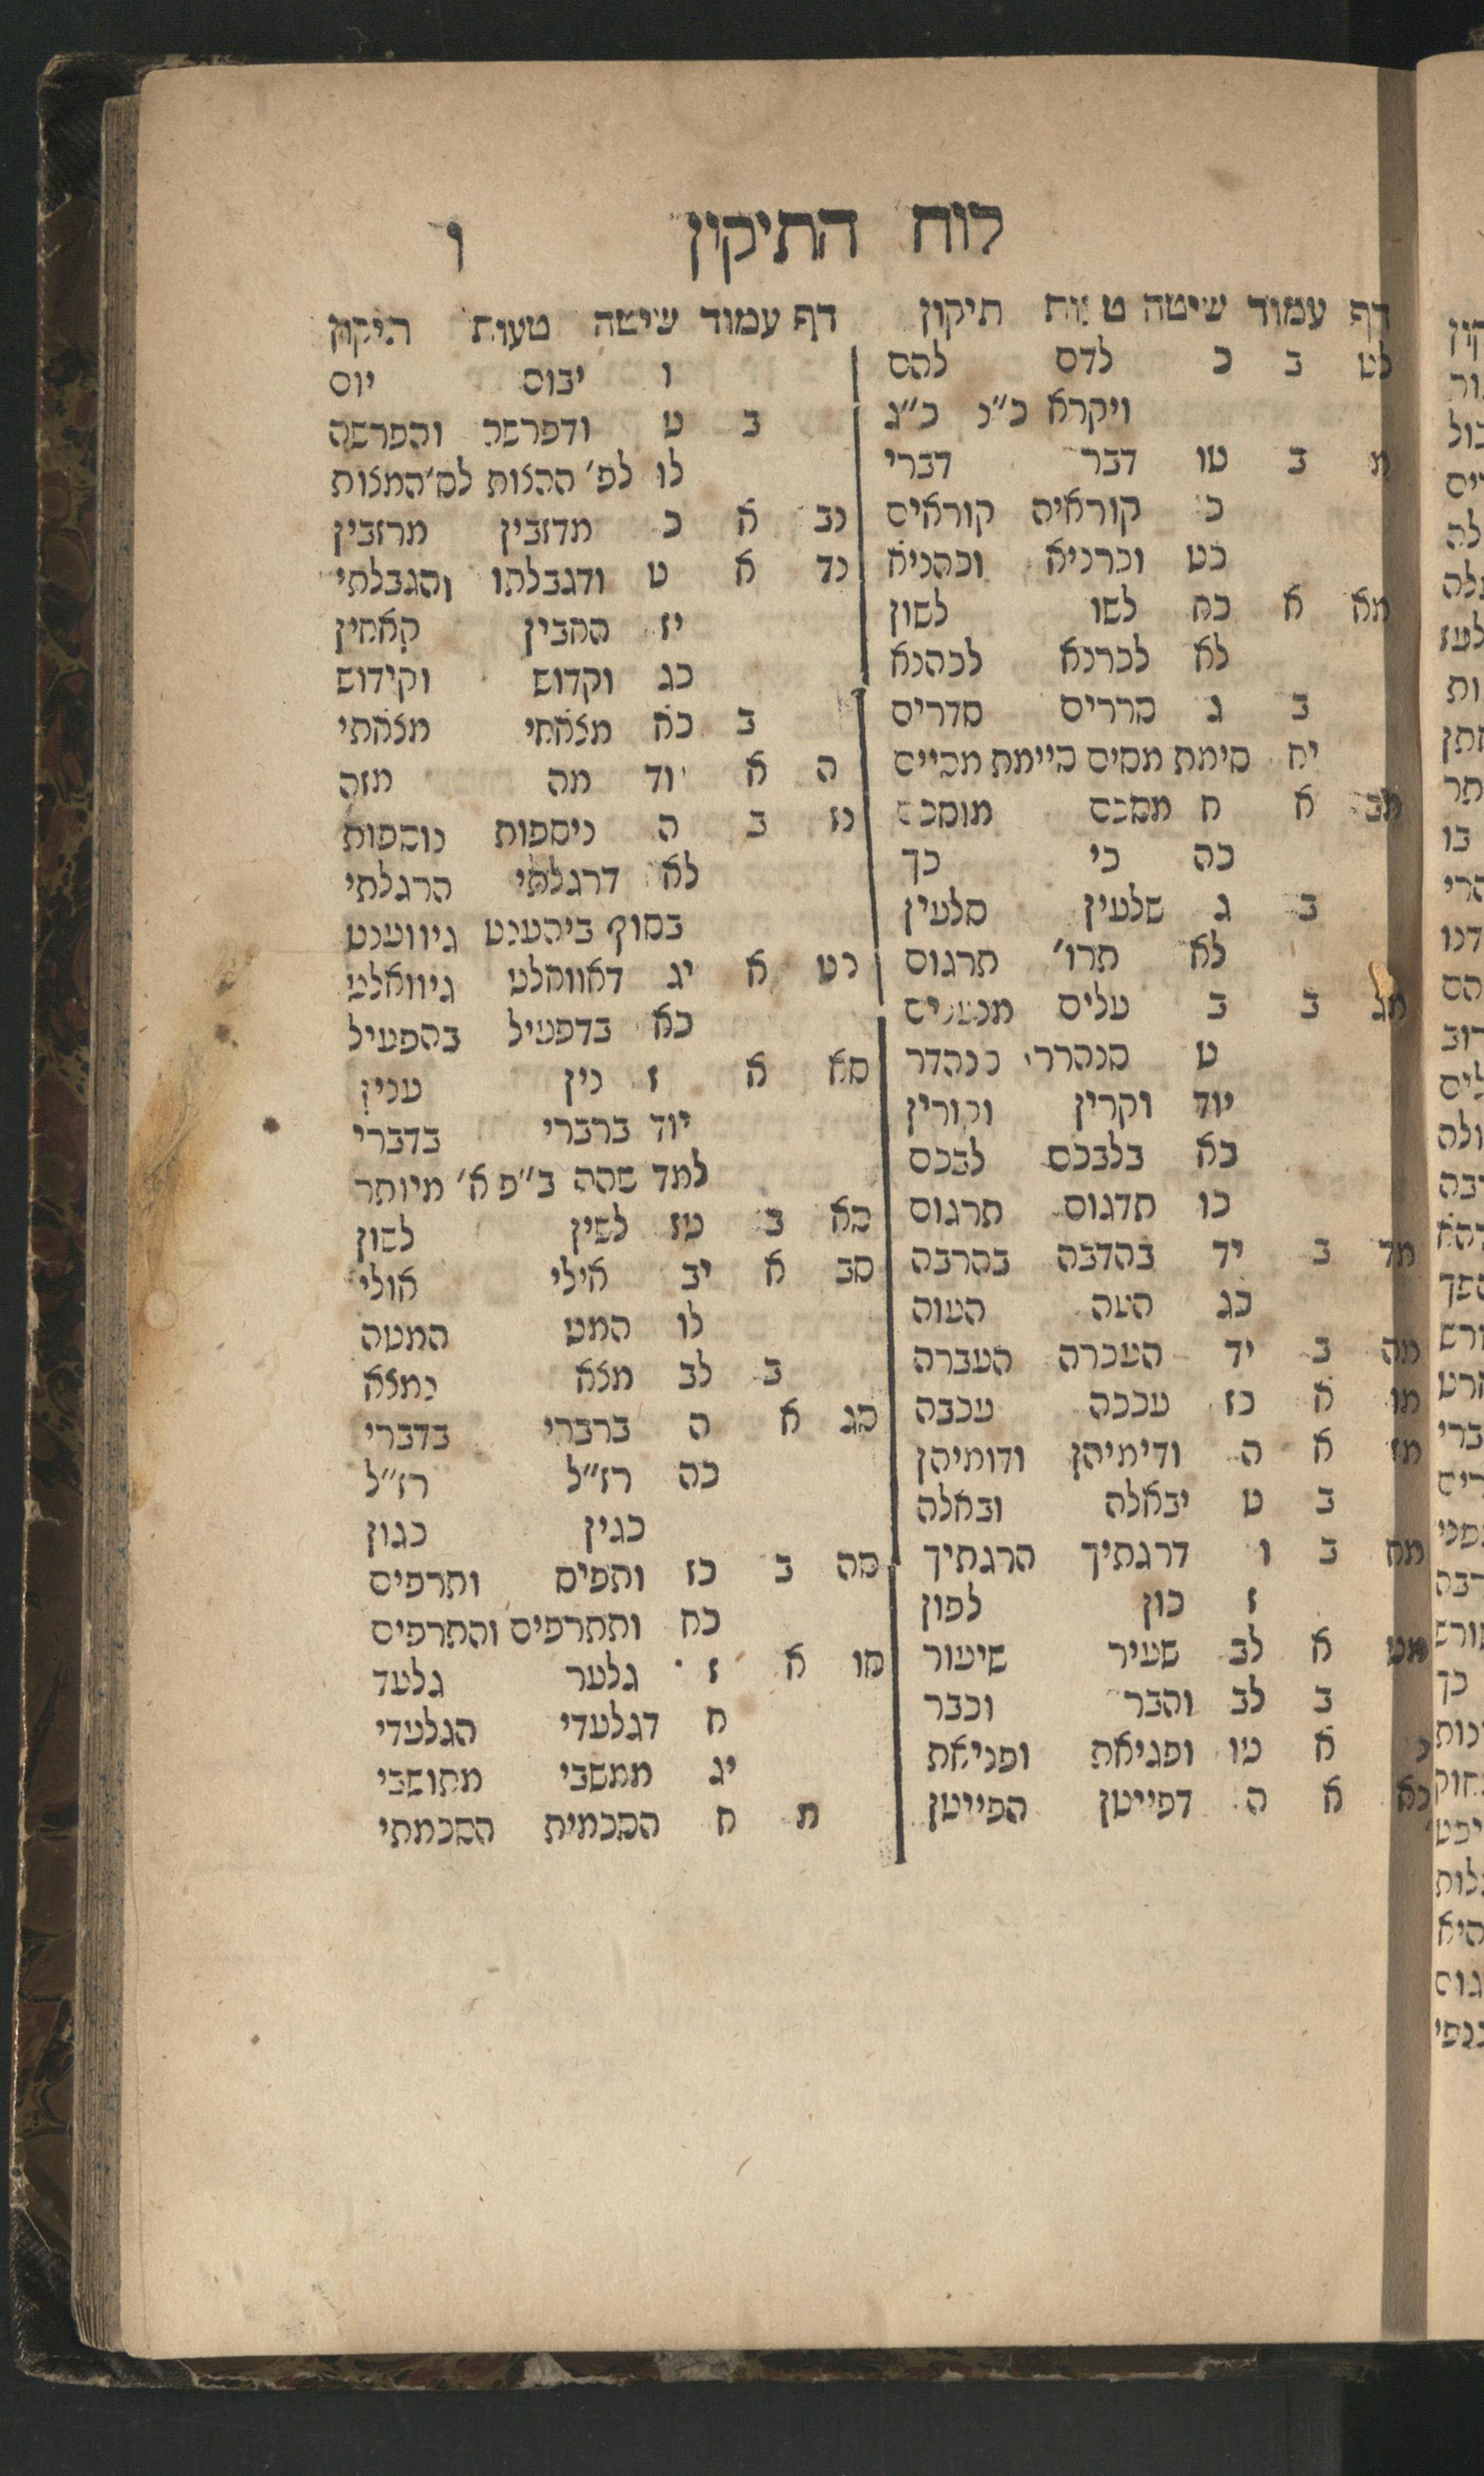 לוח התיקון ו
דף עמוד שיטה תיקון
לט ב כ לדס להס
ויקרא כ"נ כ"ג
מ ב טו דבר דברי
כ קוראיה קוראים
כט וכרניא וכהניא
מא א כח לשו לשון
לא לכרנא לכהנא
ב ג סררים סדרים
יח קימת מקים קיימת מקיים
מב א ח מסכס
כה כי כך
ב ג שלעין סלעין
לא תרו' תרגום
מג ב ב עלים
ט סנהרר
יוד וקרין וקורין
כא בלבכם לבכם
כו תדגום תרגום
מד ב יד בהדבה בהרבה
כג העה העוה
מה ב יד העכרה העברה
מו א כז עככה עכבה
מז א ה ודימיהן ודומיהן
ב ט יבאלה ובאלה
מח ב ו דרגתיך הרגתיך
ז כון לפון
מט א לב שעיר שיעור
ב לב והבר וכבר
נ א טו ופגיאת ופניאת
נא א ה דפייטן הפייטן
דף עמוד שיטה טעות תיקון
ו יבוס יוס
ב ט ודפרשה והפרשה
לו לפ' המצות
נב א כ מדזבין מרזבין
נד א ט ודגבלתו והגבלתי
יז
כג וקדוש וקידוש
ב כא מצאתי מצאתי
ה א יוד מה מזה
נז ב ה ניספות נוספות
לא דרגלתי הרגלתי
בסוף ביהענט גיווענט
נט א יג דאוואלט גיוואלט
כא בדפעיל בהפעיל
סא א ז נין ענין
יוד ברברי בדברי
למד שהה ב"פ א' מיותר
סא ב טז לשין לשון
סב א יב אילי אולי
לו המט המטה
ב לב מצא נמצא
סג א ה ברברי בדברי
כה רז"ל רז"ל
כגין כגון
סה ב כז ותפים ותרפים
כח ותתרפים והתרפים
סו א ז גלער גלעד
ח דגלעדי הגלעדי
יג ממשבי מתושבי
ת ח הסכמית הסכמתי